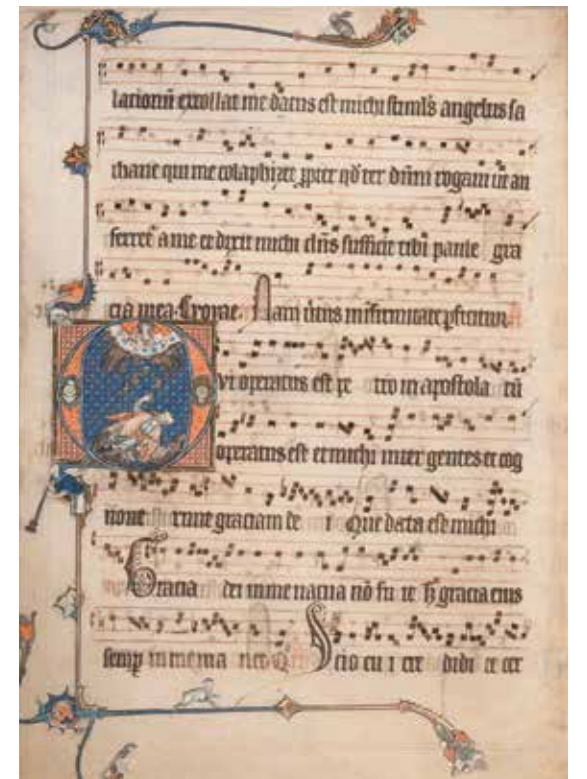 lationū extollat me datus est michi stimls angelus sa
thane qui me colaphizet ppter qd ter dūm rogavi ut au
ferret a me et dixit michi dns sufficit tibi paule gra
cia mea. Nam virtus infirmitate pficitur.
Qui operatus est pe tro in apostola tū
operatus est et michi inter gentes et cog
nove runt graciam de i Que data est michi
Gracia dei in me vacua nō fu it sz gracia eius
semp in me ma net Scio cu i cre didi et cer